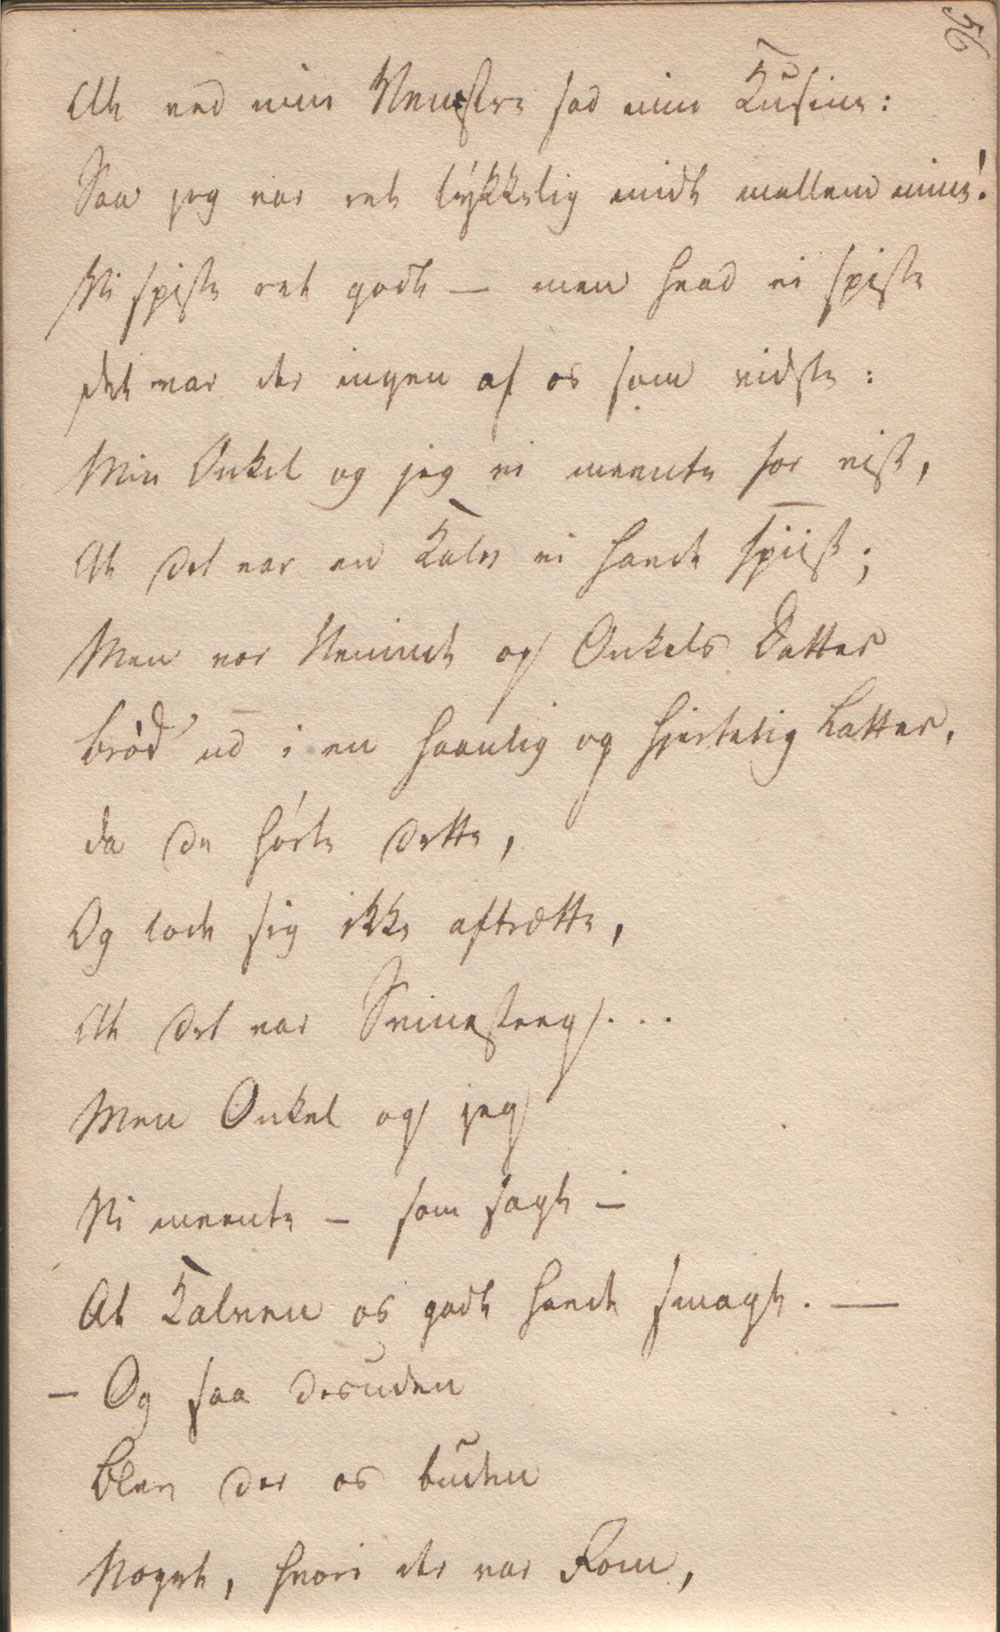 56
At ved min Venstre sad min Kusine:
Saa jeg var ret lykkelig midt mellem mine!
Vi spiste ret godt — men hvad vi spiste
det var der ingen af os som vidste:
Min Onkel og jeg vi meente for vist,
At det var en Kalv vi havde spiist;
Men vor Veninde og Onkels Datter
brød ud i en haanlig og hjertelig Latter,
da de hørte dette,
Og lode sig ikke aftrætte,
At det var Svinesteeg...
Men Onkel og jeg
Vi meente — som sagt —
At Kalven os godt havde smagt. —
— Og saa desuden
blev der os buden
Noget, hvori der var Rom,